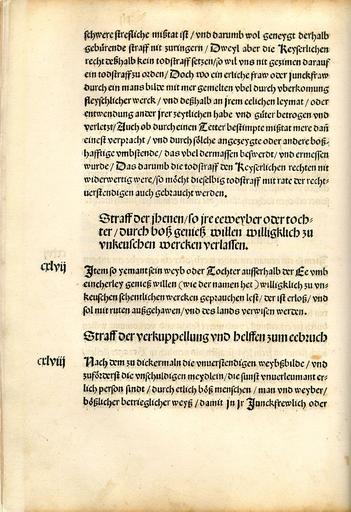 schwere strefliche mißtat ist / vnd darumb wol geneygt derhalb
gebürende straff nit zuringern / Dweyl aber die Keyserlichen
recht deßhalb kein todstraff setzen / so wil vns nit gezimen darauf
ein todstraff zu orden / Doch wo ein erliche fraw oder junckfraw
durch ein mans bilde mit mer gemelten vbel durch vberkomung
fleyschlicher werck / vnd deßhalb an jrem eelichen leymat / oder
entwendung ander jrer zeytlichen habe vnd güter betrogen vnd
verletzt / Auch ob durch einen Tetter bestimpte mißtat mere dañ
einest verpracht / vnd durch sölche angezeygte oder andere boß-
hafftige vmbstende / das vbel dermassen beswerdt / vnd ermessen
wurde / Das darumb die todstraff den Keyserlichen rechten nit
widerwertig were / so möcht dieselbig todstraff mit rate der recht-
uerstendigen auch gebraucht werden.
Straff der jhenen / so jre eeweyber oder toch-
ter / durch böß genieß willen williglich zu
vnkeuschen wercken verlassen.
cxlvij
Item so yemant sein weyb oder Tochter ausserhalb der Ee vmb
eincherley genieß willen (wie der namen het) williglich zu vn-
keuschen schentlichen wercken geprauchen lest / der ist erloß / vnd
sol mit ruten außgehawen / vnd des lands verwisen werden.
Straff der verkuppellung vnd helffen zum eebruch
cxlviij
Nach dem zu dickermaln die vnuerstendigen weybßbilde / vnd
zuförderst die vnschuldigen meydlein / die sunst vnuerleumant er-
lich person sindt / durch etlich böß menschen / man vnd weyber /
bößlicher betrieglicher weyß / damit in jr Junckfrewlich oder